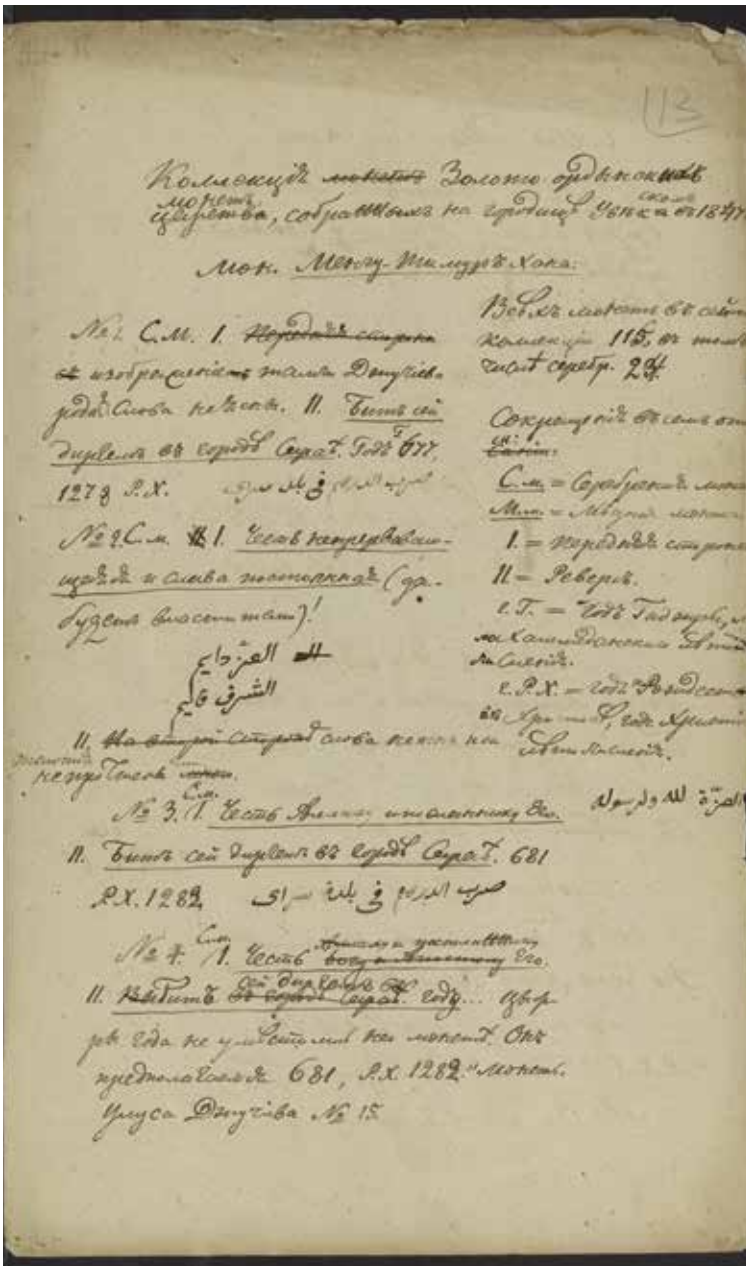 113
Коллекція Золото ордынскихъ
монетъ
царства, собранныхъ на городищѣ Увек скомъ въ 1847
Мон. Менгу-Тимуръ Хана.
№ 1. С.м. I. Передняя сторона
изображеніе тамги Джучіева
рода. Слова неясны. II. Битъ сей
дирхемъ въ городѣ Сараѣ. Годъ Г. 677.
1278 Р.Х. ضرب الدرهم في بلد سراى
№ 2. С.м. I. Честь непрерываю-
щаяся и слава постоянная (да
будетъ властителю)!
العزّ دايم
الشرف قايم
II. На второй сторонѣ слова
№ 3. С.м. I. Честь Аллаху и посланнику Его.
II. Битъ сей дирхемъ въ городѣ Сараѣ. 681
Р.Х. 1282 ضرب الدرهم في بلدة سراى
№ 4. С.м. I. Честь Аллаху и посланнику Его.
II. Выбитъ сей дирхемъ въ городѣ Сараѣ году... Циф-
ры года не умѣстились на монетѣ. Онъ
предполагаемъ 681, Р.Х. 1282. "Монеты.
Улуса Джучіева № 15
Всѣхъ монетъ въ сей
коллекціи 115, въ томъ
числѣ серебр. 24.
Сокращенія въ семъ
С.м. = Серебряная
М.м. = Мѣдная монета
I. = передняя сторона
II. = Реверсъ.
г. Г. = Годъ Гиджры,
г. Р.Х. = годъ Рождест
Христова, годъ Христі
лѣтосчисленія.
العزّة لله ولرسوله